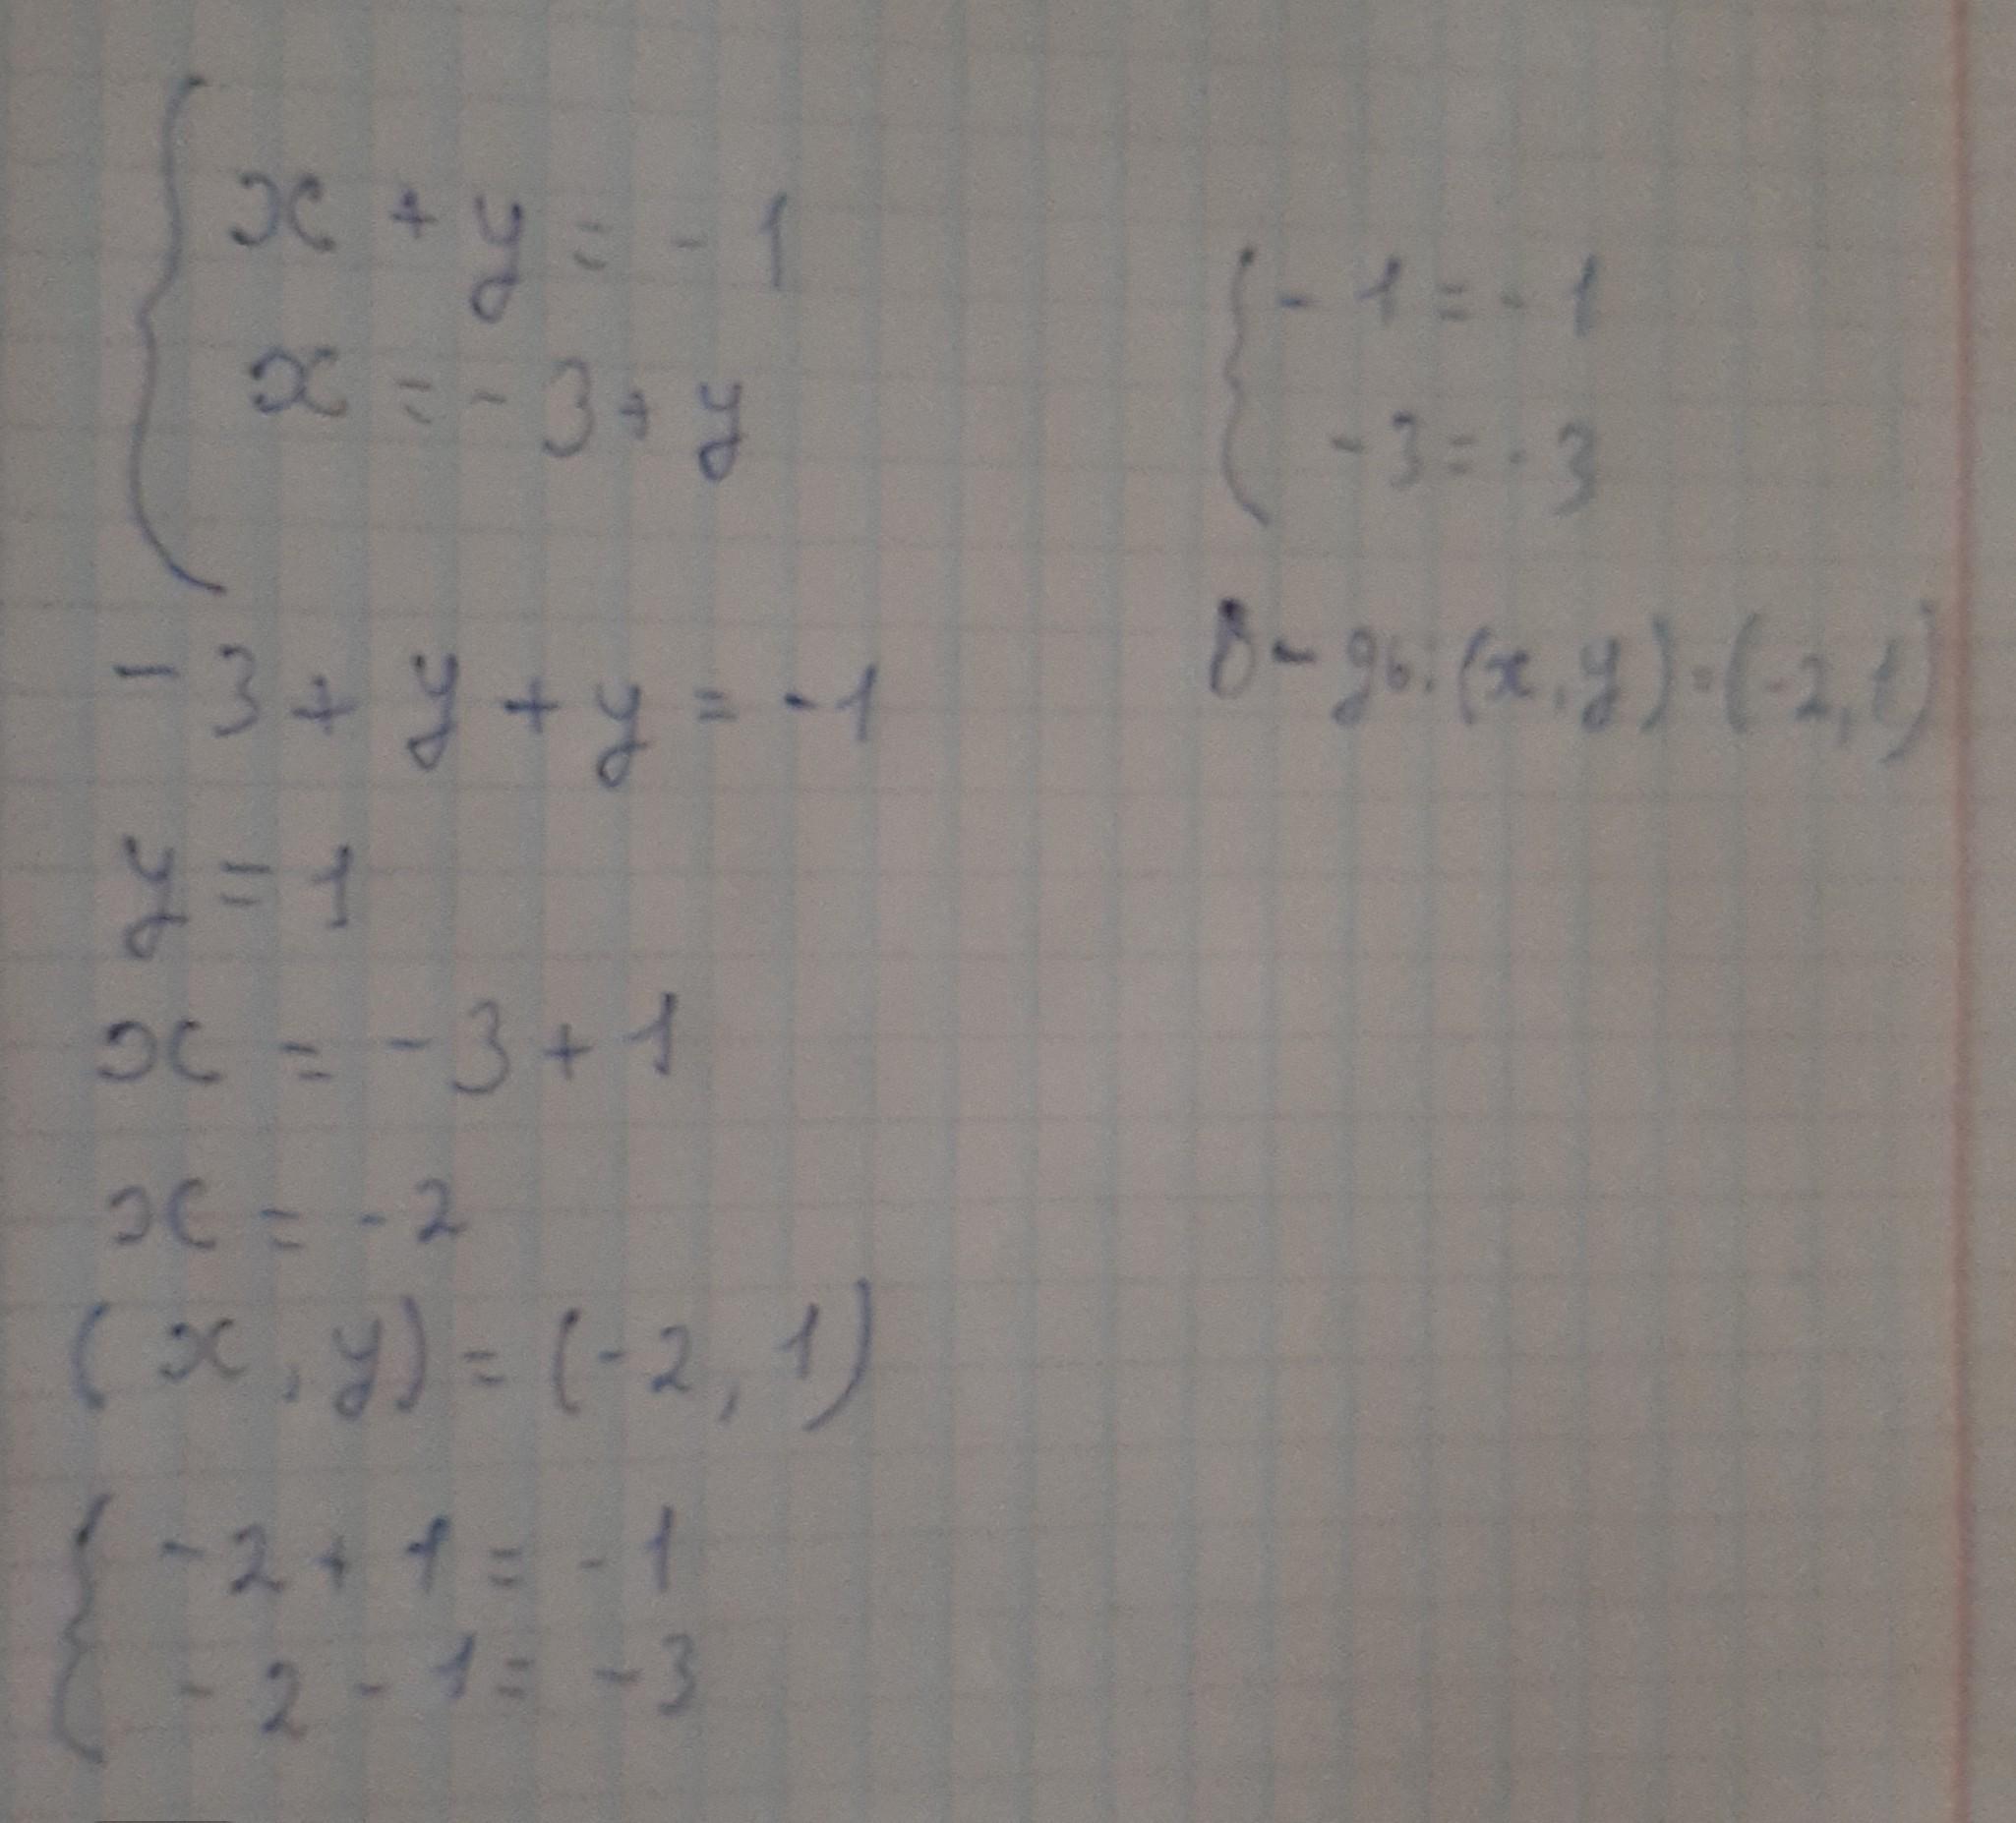 x + y = - 1
x = - 3 + y
- 3 + y + y = - 1
y = 1
x = - 3 + 1
x = - 2
(x, y) = (-2, 1)
- 2 + 1 = - 1
- 2 - 1 = - 3
- 1 = - 1
- 3 = - 3
В-дь: (x, y) = (-2, 1)